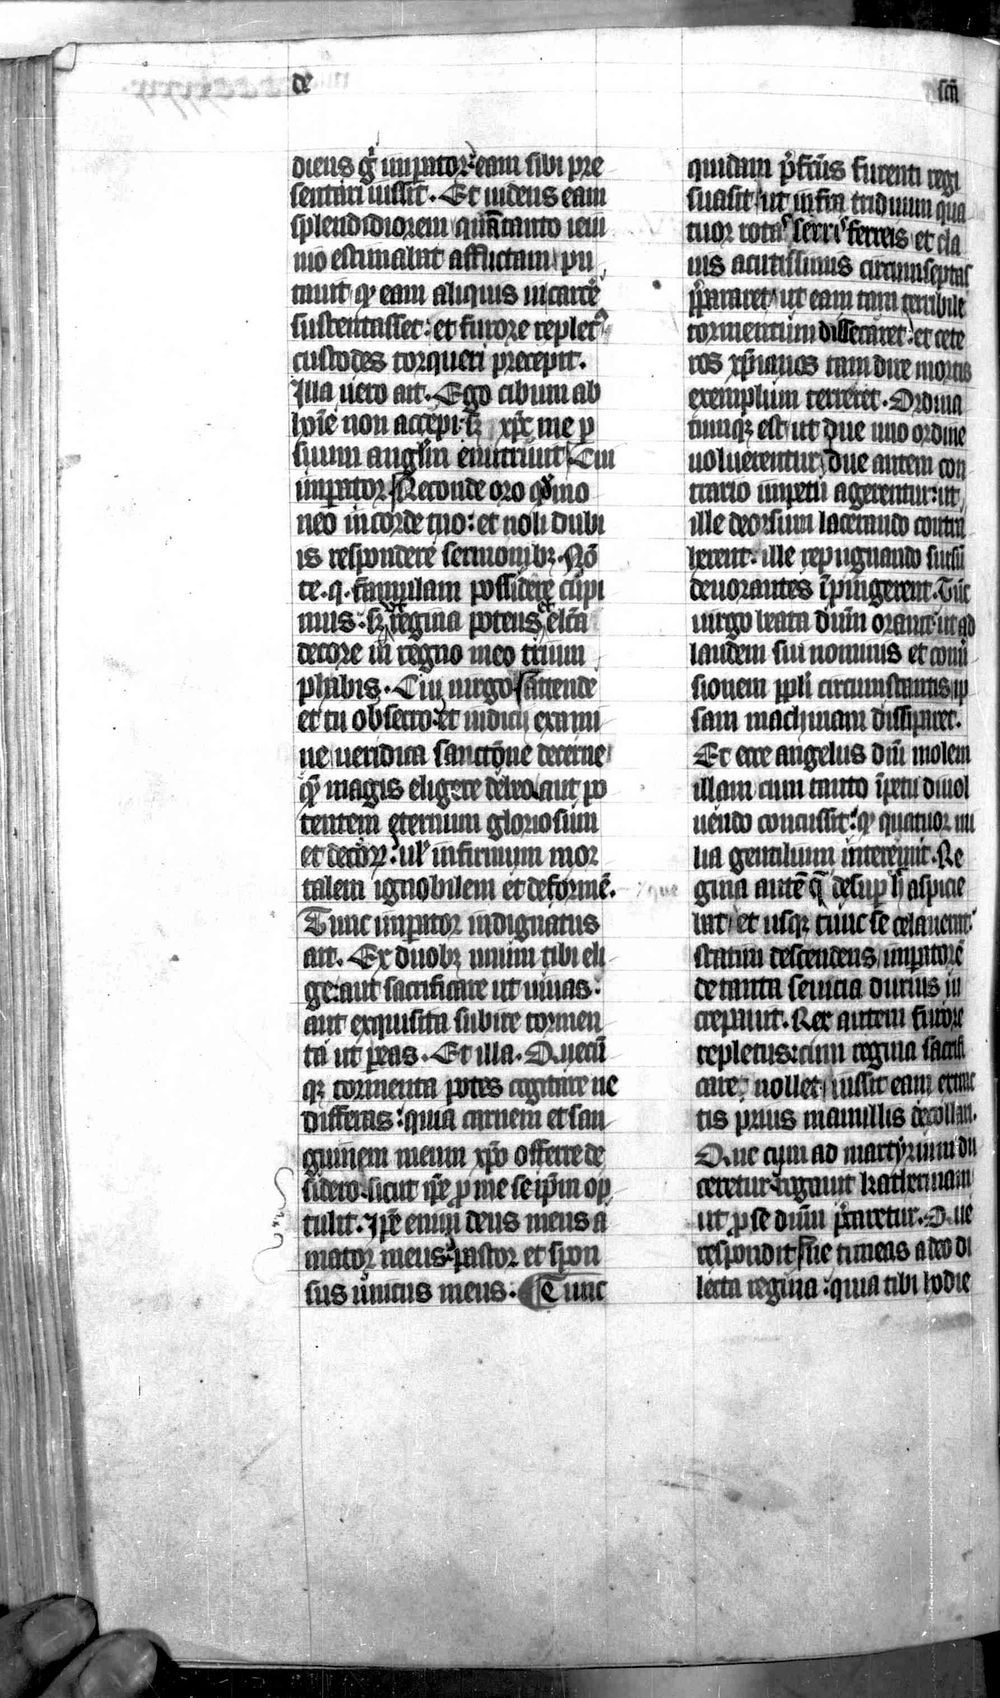 de
scā
diens gͥ imperator: eam sibi pre
sentari iussit. Et uidens eam
splendidiorem quā tanto ieiu
nio estimabat afflictam pu
tauit qͥ eam aliquis in carcē
sustentasset: et furore repletꝰ
custodes torqueri precepit.
Illa uero ait. Ego cibum ab
hoīe non accepi. sꝫ xp̄c me ꝑ
suum angl̄m enutriuit Cui
imꝑator Reconde oro qͦ mo
neo in corde tuo: et noli dubi
is respondere sermonibꝫ. Nō
te. q. famulam possidere cupi
mus. sꝫ ut regina potens et elc̄a
decore in regno meo trium
phabis. Cui uirgo attende
et tu obsecro: et iudicii exami
ne ueridica sanctōne decerne
qͥ magis eligere debeo aut po
tentem eternum gloriosum
et decoꝝ: ul̓ infirmum mor
talem ignobilem et deformē.
Tunc imperator indignatus
ait. Ex duobꝫ unum tibi eli
ge: aut sacrificare ut uiuas:
aut exquisita subire tormen
ta ut ꝑeas. Et illa. Quecū
qꝫ tormenta potes cogitare ne
differas: quia carnem et san
guinem meum xp̄o offerre de
sidero. sicut ip̄e ꝓ me se ip̄m op
tulit. Ip̄e enim deus meus a
mator meus: pastor et spon
sus unicus meus. Tunc
quidam p̄fc̄us furenti regi
suasit ut infra triduum qua
tuor rotas serris ferreis et cla
uis acutissimis circumseptas
p̄pararet ut eam tam terribile
tormentum dissecaret: et cete
ros xp̄ianos tam dire mortis
exemplum terreret. Ordina
tumqꝫ est ut due uno ordine
uoluerentur due autem con
trario impetu agerentur: ut
ille deorsum lacerando contra
herent. ille repugnando sursū
deuorantes īpingerent. Tūc
uirgo beata dūm orauit ut ad
laudem sui nominis et conuer
sionem ppl̄i circumstantis ip
sam machinam dissiparet.
Et ecce angelus dn̄i molem
illam cum tanto īpetu diuol
uendo concussit: qͥ quatuor mi
lia gentilium interemit. Re
gina autē q̄ desup h̄ aspicie
bat et usqꝫ tunc se celauerat:
statim descendens imꝑatorē
de tanta seuicia durius in
crepauit. Rex autem furore
repletus: cum regina sacrifi
care nollet iussit eam extrac
tis prius mamillis decollari.
Que cum ad martyrium du
ceretur: rogauit katherinam
ut ꝓ se dn̄m p̄caretur. Que
respondit ne timeas a deo di
lecta regina: quia tibi hodie